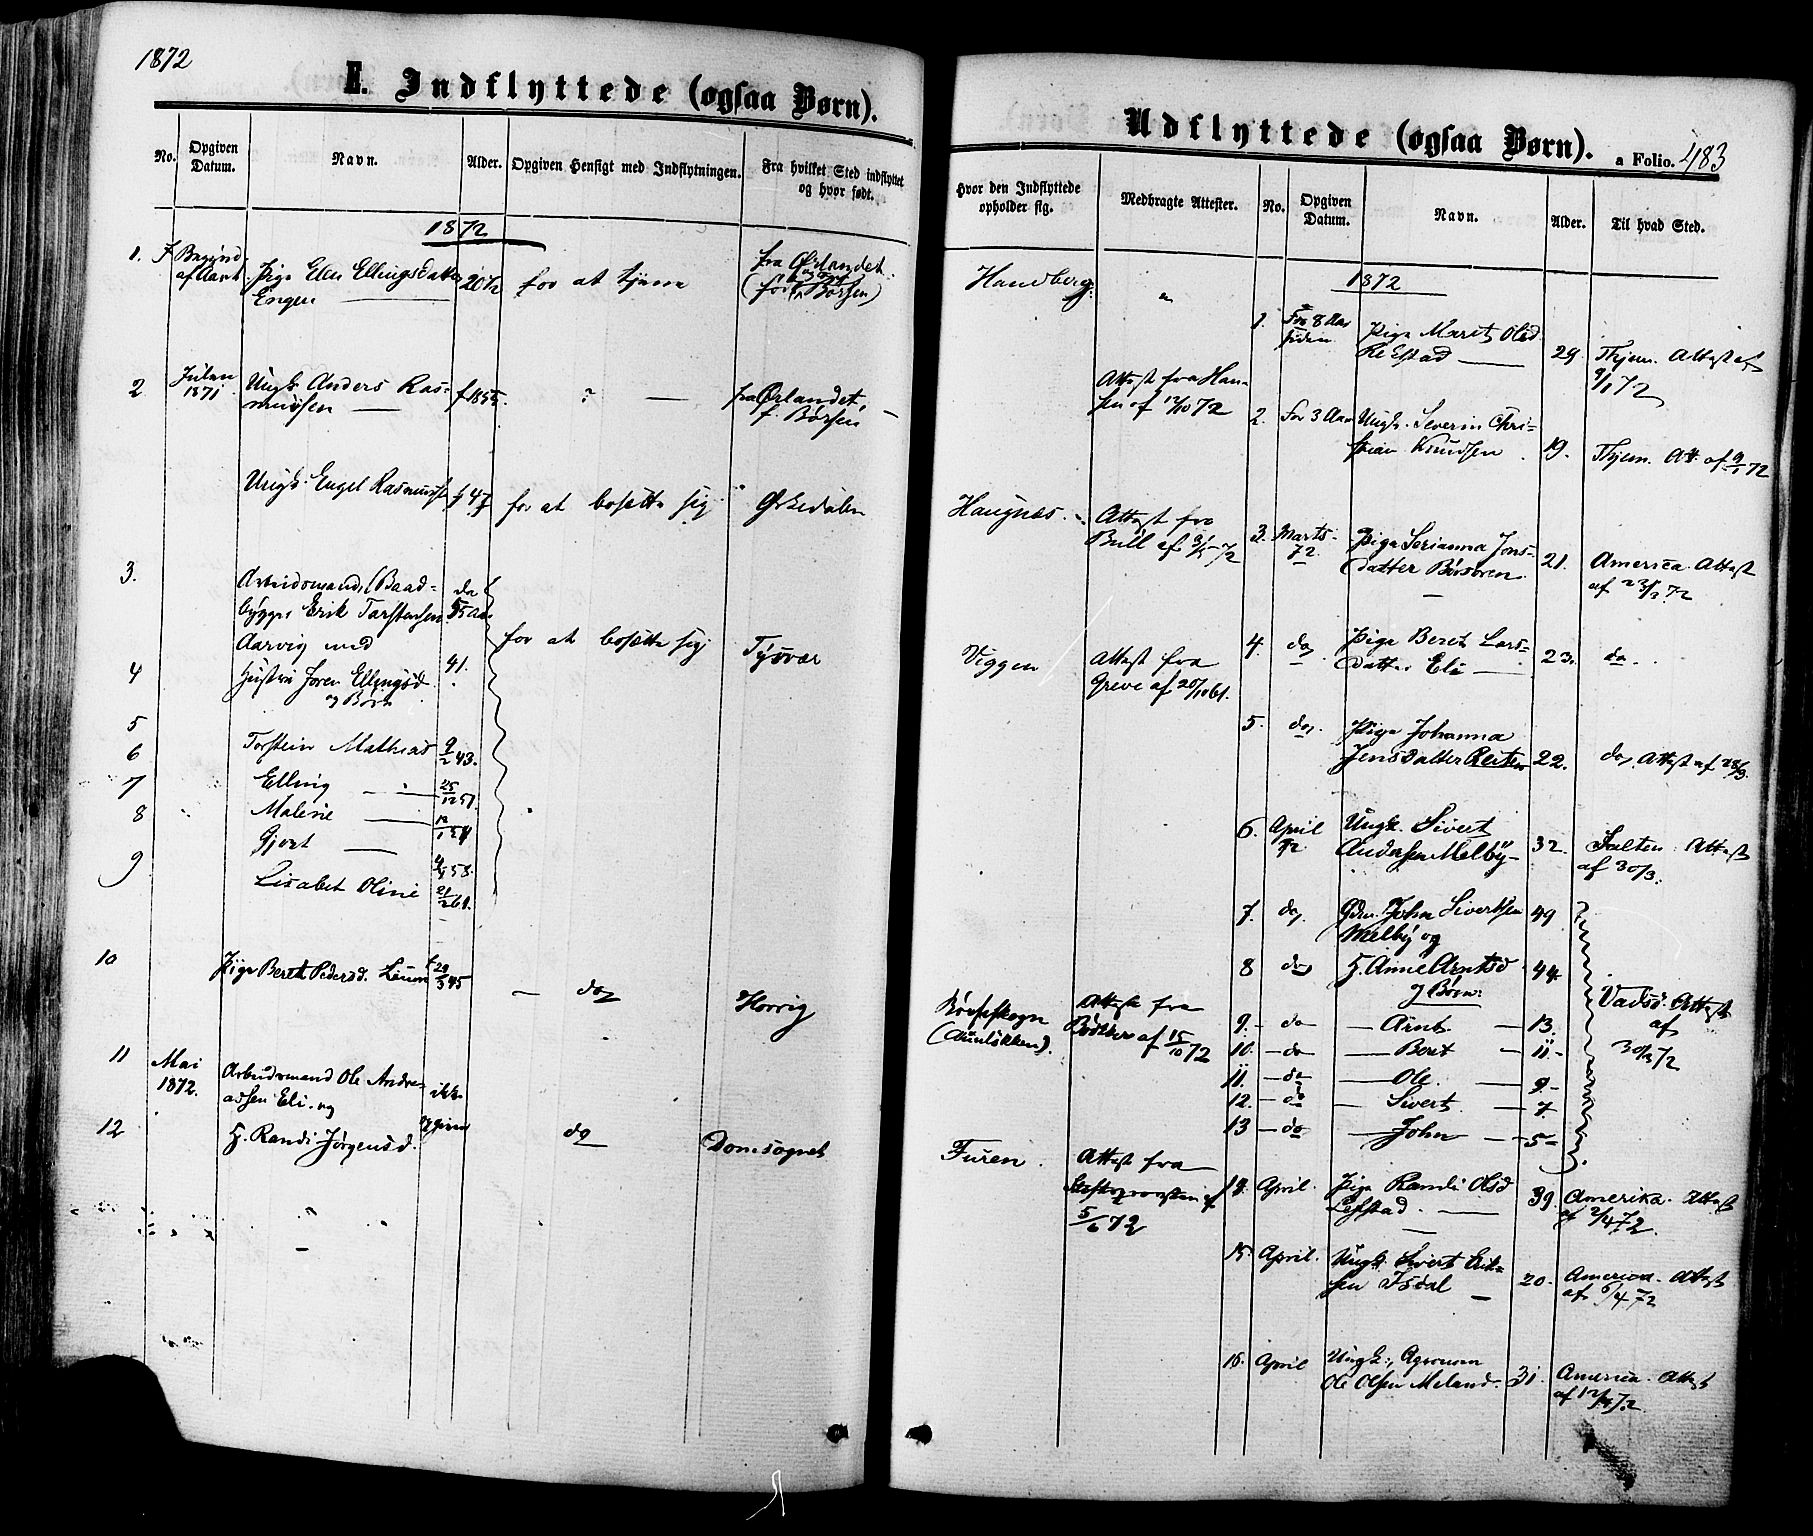 1872
E. Indflyttede (ogsaa Børn).
No.
Opgiven Datum.
Navn.
Alder.
Opgiven Hensigt med Indflytningen.
Fra hvilket Sted indflyttet og hvor født.
1872
1. Pige Ellingsdatter
Engen
for at tjene
fra Ørlandet
Børsen)
2 Julen 1871
Ungk. Anders Ras-
mussen
f 1855
?
fra Ørlandet,
f. Børsen
Ungk. Engel Rasmuss
f 47
for at bosætte sig
Ørkedalen
3.
Arbeidsmand, (Baad-
bygger Erik Torstensen
Aarvig med
for at bosætte sig
Tysvær
4 Hustru Joren Ellingsd.
og Børn
41.
5 Torstein Mathias 9/2 43.
6 Elling 25/12 51.
7 Malene
8 Gjert
9 Lisabet Oline 21/2 61.
10 Pige Beret Pedersd.
do
11 Mai 1872.
Arbeidsmand Ole Andre-
assen Eli og
ikke
opgiven
12 H. Randi Jørgensd.
do
Domsognet
Udflyttede (ogsaa Børn).
a Folio. 483
Hvor den Indflyttede opholder sig.
Medbragte Attester.
No.
Opgiven Datum.
Navn.
Alder.
Til hvad Sted.
Handberg
"
Attest fra Han-
sen af 72
Haugnæs.
Attest fra
Brill af 72
Viggen
Attest fra
Greve af 20/10 61.
Børseskogn
Attest fra
af 15/10 72
Furen.
Attest fra
5/6 72
1872
1. For 8 Aar siden
Pige Marit Olsd.
29. Thjem. Attest af
9/1 72
2. For 3 Aar
Ungk. Severin Chri-
stian Knudsen
19. Thjem. Att. af 9/1 72
3. Marts 72.
Pige Serianna Jons-
datter Børsøren
21. America. Attest
af 23/3 72
4. do.
Pige Beret Lars-
datter Eli
23. do.
5. do.
Pige Johanna
Jensdatter Reiten
22. do. Attest af 28/3.
6. April 72
Ungk. Sivert
Andersen Melby
32. Salten. Attest
af 30/3.
7. do.
Gdm. John Sivertsen
Melby og
49
8 do
H. Anne Arntsd
og Børn:
44.
9. do Arnt 13.
10. do Beret 11
11. do Ole. 9
12. do Sivert. 7
13 do John 5
Vadsö. Attest
af
30/3 72
14. April.
Pige Randi Olsd
39. Amerika. Attest
af 2/4 72.
15. April.
Ungk. Sivert Erik-
sen Isdal
20. America. Attest
af 6/4 72
16. April
Ungk., Agronom
Ole Olsen Meland.
31. America. Attest
af 12/4 72.